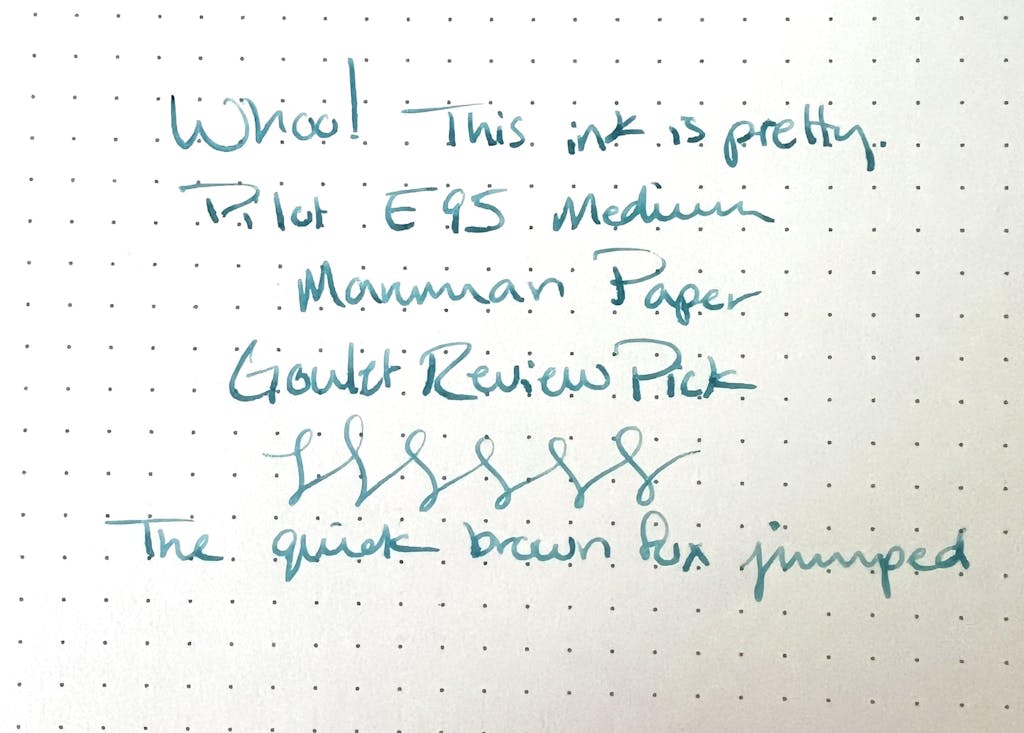 Whoo! This ink is pretty.
Pilot E95 Medium
Maruman Paper
Goulet Review Pick
The quick brown fox jumped